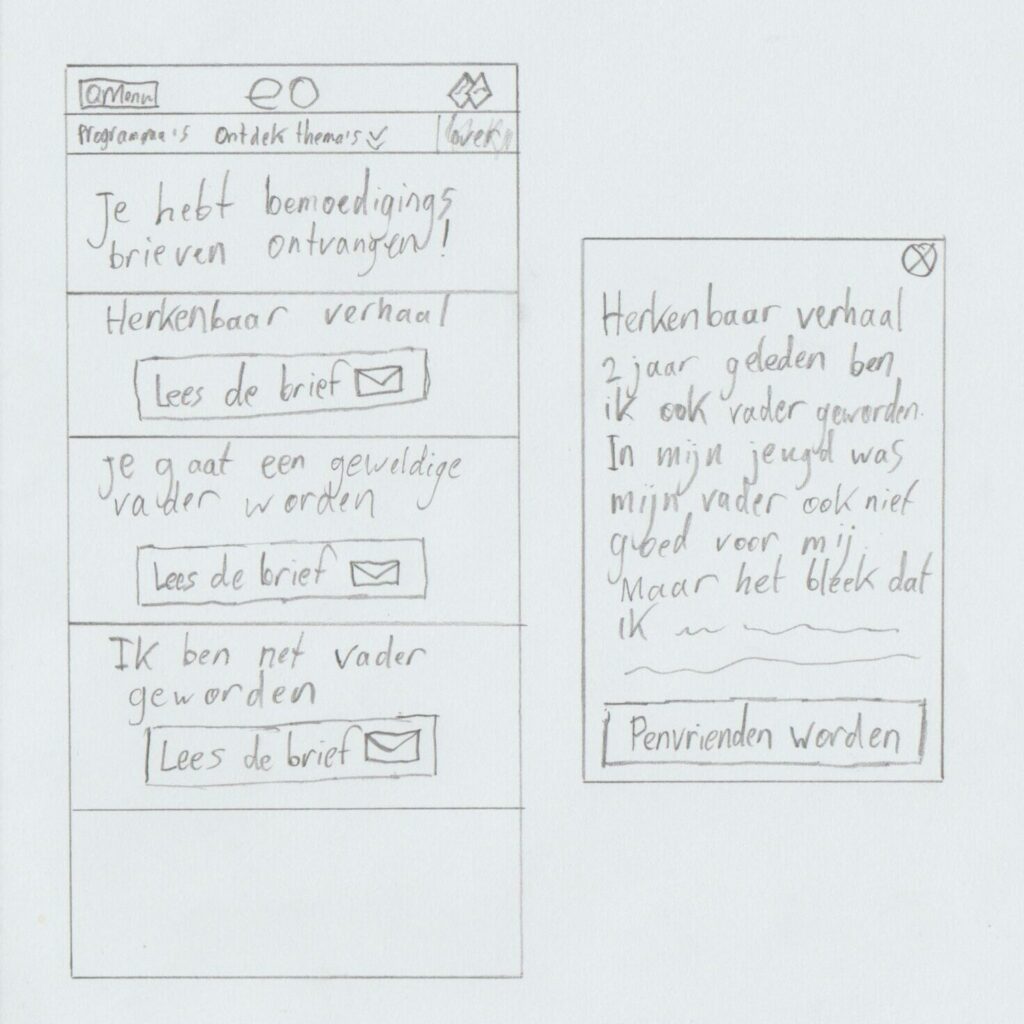 Menu
eo
Programma's Ontdek thema's
Je hebt bemoedigings
brieven ontvangen!
Herkenbaar verhaal
Lees de brief
je gaat een geweldige
vader worden
Lees de brief
Ik ben net vader
geworden
Lees de brief
Herkenbaar verhaal
2 jaar geleden ben
ik ook vader geworden.
In mijn jeugd was
mijn vader ook niet
goed voor mij.
Maar het bleek dat
ik
Penvrienden worden